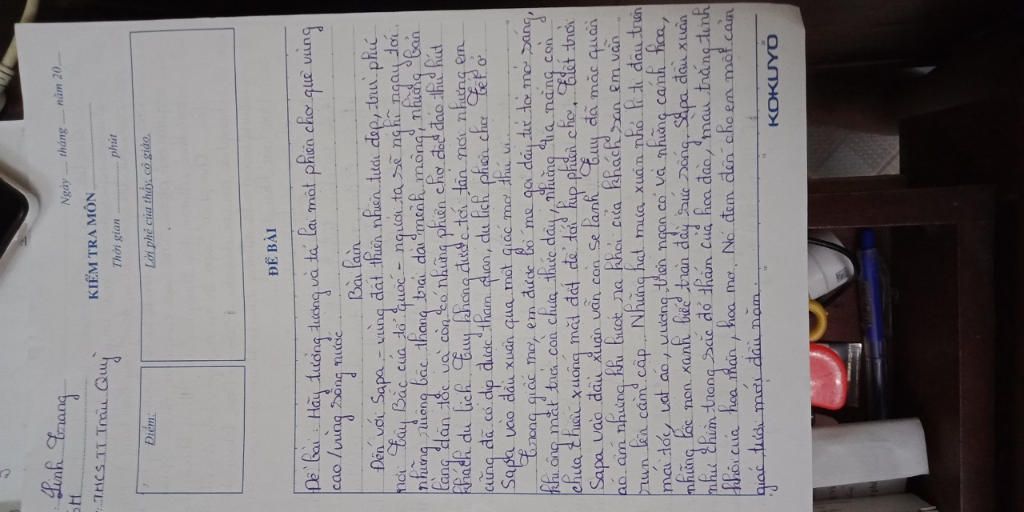 Linh Trang
THCS.TT Trâu Quỳ
Ngày ___ tháng ___ năm 20___
KIỂM TRA MÔN
Thời gian ______ phút
Điểm:
Lời phê của thầy, cô giáo
ĐỀ BÀI
Đề bài: Hãy tưởng tượng và tả lại một phiên chợ quê vùng
cao/vùng sông nước
Bài làm
Đến với Sapa - vùng đất thiên nhiên tươi đẹp, trù phú
nơi Tây Bắc của tổ quốc - người ta sẽ nghĩ ngay tới
những ruộng bậc thang trải dài mênh mông, những bản
làng dân tộc và còn có những phiên chợ độc đáo thu hút
khách du lịch. Tuy không được tới tận nơi nhưng em
cũng đã có dịp được tham quan, du lịch phiên chợ Tết ở
Sapa vào đầu xuân qua một giấc mơ thú vị.
Trong giấc mơ, em được bố mẹ gọi dậy từ tờ mờ sáng,
khi ông mặt trời còn chưa thức dậy, những tia nắng còn
chưa chiếu xuống mặt đất để tới kịp phiên chợ. Tiết trời
Sapa vào đầu xuân vẫn còn se lạnh. Tuy đã mặc quần
áo ấm nhưng khi bước ra khỏi cửa khách sạn em vẫn
run lên cầm cập. Những hạt mưa xuân nhỏ li ti đậu trên
mái tóc, vạt áo, vương trên ngọn cỏ và những cánh hoa,
những lộc non xanh biếc tràn đầy sức sống. Sapa đầu xuân
như chìm trong sắc đỏ thắm của hoa đào, màu trắng tinh
khôi của hoa mận, hoa mơ. Nó đem đến cho em một cảm
giác tươi mới đầu năm.
KOKUYO